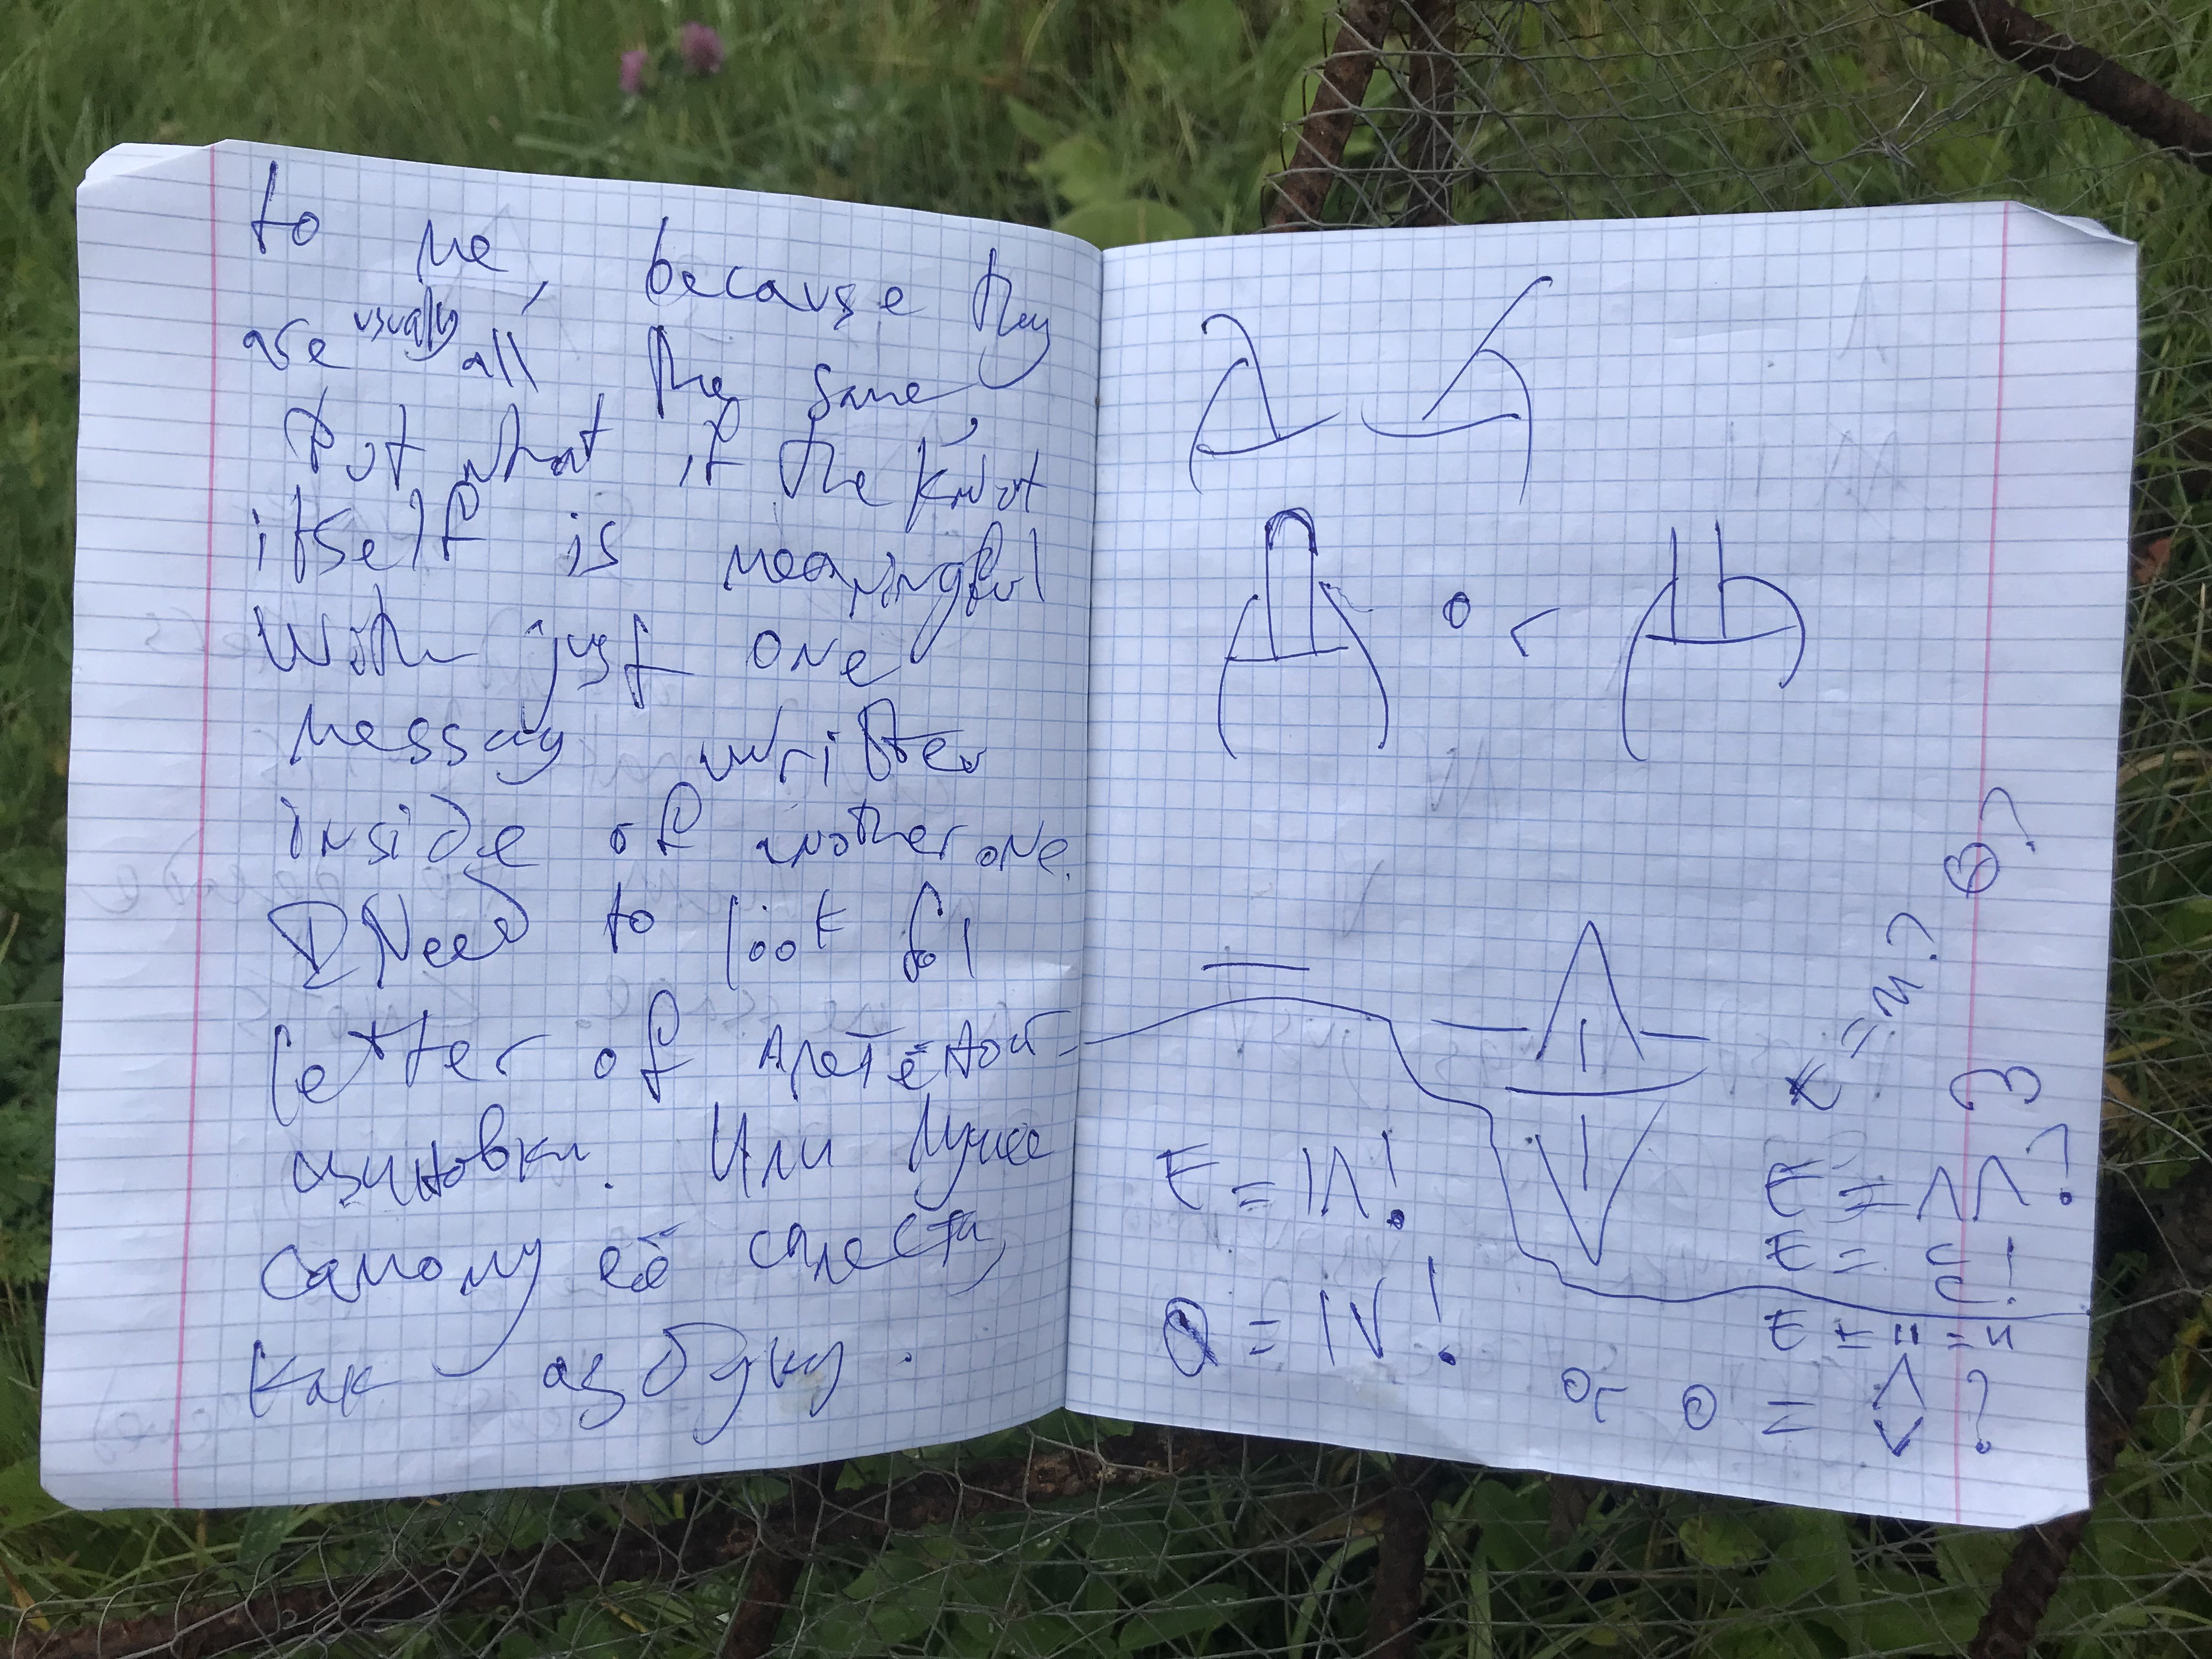 to me, because they
are usually all the same,
But what if the knot
itself is meaningful
With just one
message written
inside of another one.
Need to look for
letter of плетёной
циновки. Или лучше
самому её сплести,
как азбуку.
or
E = IΛ!
O = IV!
or O = ?